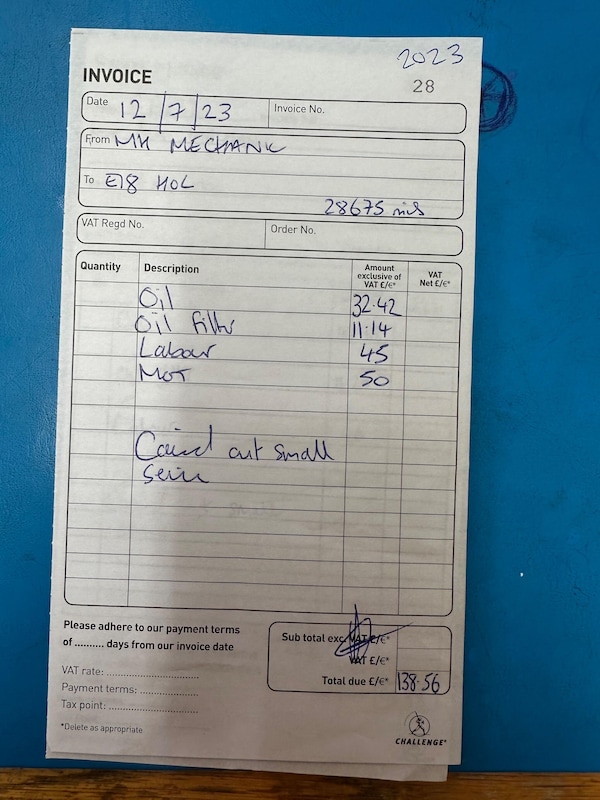 2023
INVOICE
28
Date 12/7/23 Invoice No.
From MH MECHANIC
To E78 HOL
28675 mils
VAT Regd No. Order No.
Quantity Description Amount exclusive of VAT £/€* VAT Net £/€*
Oil 32.42
Oil Filtr 11.14
Labour 45
MOT 50
out small
Please adhere to our payment terms
of .......... days from our invoice date
Sub total exc VAT £/€*
VAT £/€*
Total due £/€* 138.56
VAT rate: ..........................
Payment terms: ................
Tax point: ........................
*Delete as appropriate
CHALLENGE®